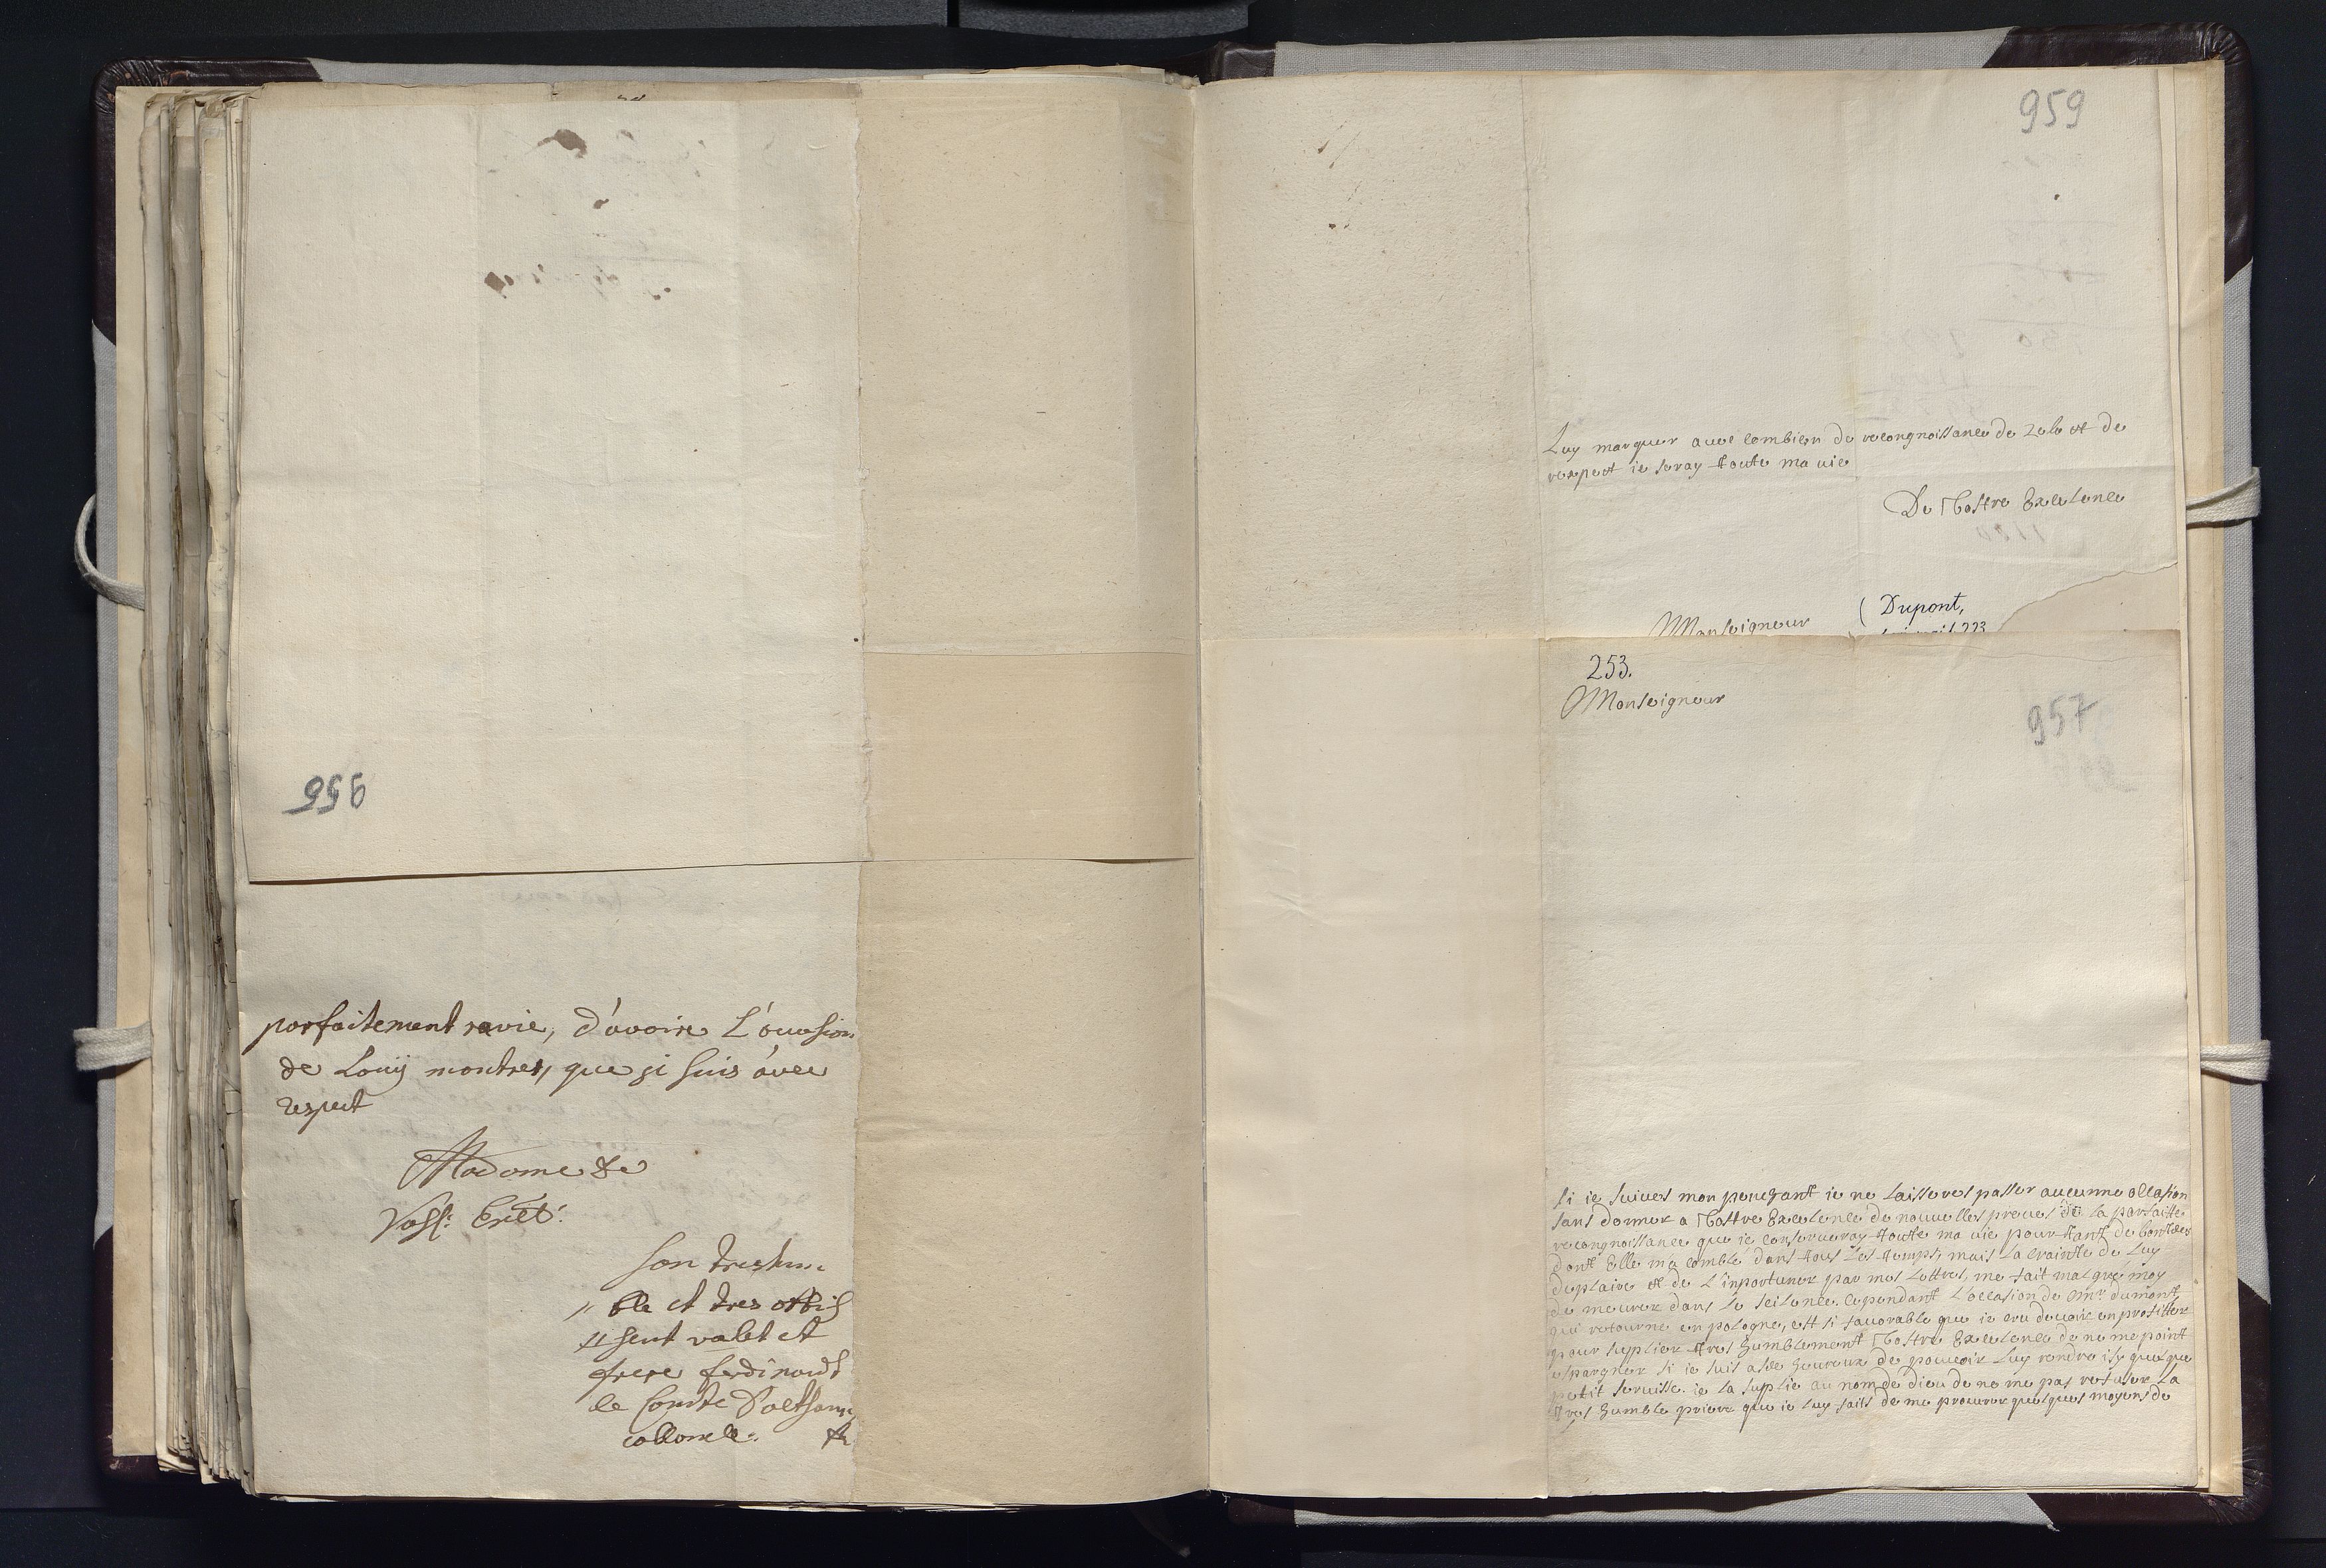 956
parfaitement ravie, d'avoire L'ocasion
de Louij montrer, que ji suis avec
respect
Madame &e
Vost: Exct:
son treshum
" ble et tres obbis
" sent valet et
frere ferdinandt
le Comte
collonele.
959
Luy marquer avec combien de recongnoissance de zele et de
respect ie seray toute ma vie
De Vostre Excelence
Monseigneur
( Dupont,
253.
Monseigneur
957
Si ie suives mon penchant ie ne laisseres passer aucunne occasion
sans donner a Vostre Excelence de nouvelles preuves de la parfaitte
recongnoissance que ie conserveray toute ma vie pour tant de bontées
dont Elle m'a comblé dans tous les temps, mais la crainte de Luy
deplaire et de L'inportuner par mes Lettres, me fait malgré moy
de meurer dans le seilence. cependant L'occasion de Mr dumont
qui retourne en pologne, est si favorable que ie cru devoir en profitter
pour suplier tres humblement Vostre Excelence de ne me point
espargner si ie suis asse heureux de pouvoir Luy rendre isy quelque
petit servisse. ie la suplie au nom de dieu de ne me pas refuser La
tres humble priere que ie luy faits de me procurer quelques moyens de